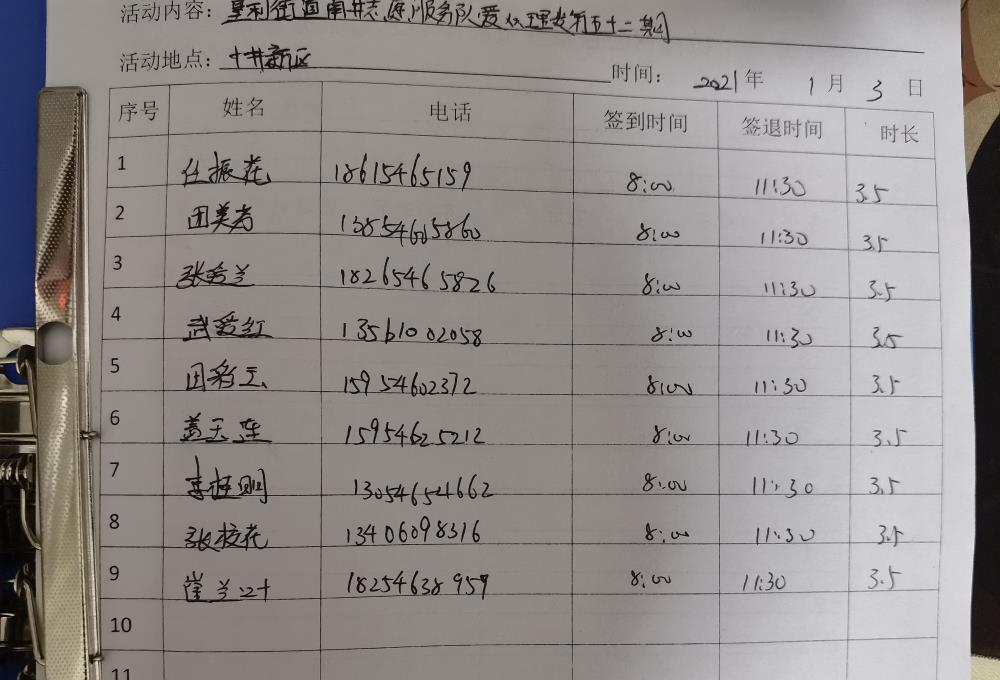 活动内容：垦利街道南井志愿服务队爱心理发第五十二期
活动地点：十井新区 时间： 2021年 1月 3日
序号 姓名 电话 签到时间 签退时间 时长
1 任振花 18615465159 8:00 11:30 3.5
2 田美芳 13854605860 8:00 11:30 3.5
3 张秀兰 18265465826 8:00 11:30 3.5
4 武爱红 13561002058 8:00 11:30 3.5
5 田彩云 15954602372 8:00 11:30 3.5
6 盖玉莲 15954625212 8:00 11:30 3.5
7 13054654662 8:00 11:30 3.5
8 张校花 13406098316 8:00 11:30 3.5
9 崔兰叶 18254638959 8:00 11:30 3.5
10
11